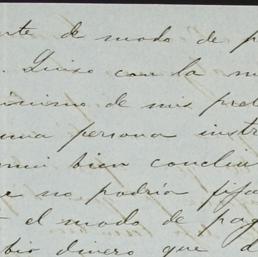 te de modo de p
. Quiso con la m
ismo de mis pre
una persona instr
mui bien conclui
no podría fija
el modo de pag
bio dinero que d